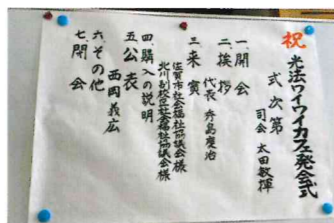 祝
光法ワイワイカフェ発会式
式次第
司会 太田敏揮
一、開会
二、挨拶
代表 寿島慶治
三、来賓
佐賀市社会福祉協議会様
北川副校区社会福祉協議会様
四、購入の説明
五、公表
西岡義広
六、その他
七、閉会